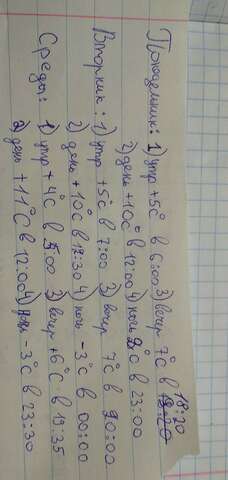 Понедельник: 1) утр +5°С в 6:00 3) вечер 7°С в 18:20
2) день +10°С в 12:00 4) ночь 2°С в 23:00
Вторник: 1) утр +5°С в 7:00 3) вечер 7°С в 20:00
2) день +10°С в 17:30 4) ночь -3°С в 00:00
Среда: 1) утр +4°С в 5:00 3) вечер +6°С в 19:35
2) день +11°С в 12:00 4) ночь -3°С в 23:30